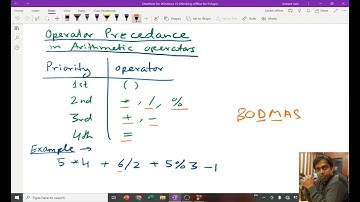 Operator Precedance
in Arithmetic operators
Priority operator
1st ( )
2nd *, /, %
3rd +, -
4th =
BODMAS
Example →
5 * 4 + 6/2 + 5%3 -1